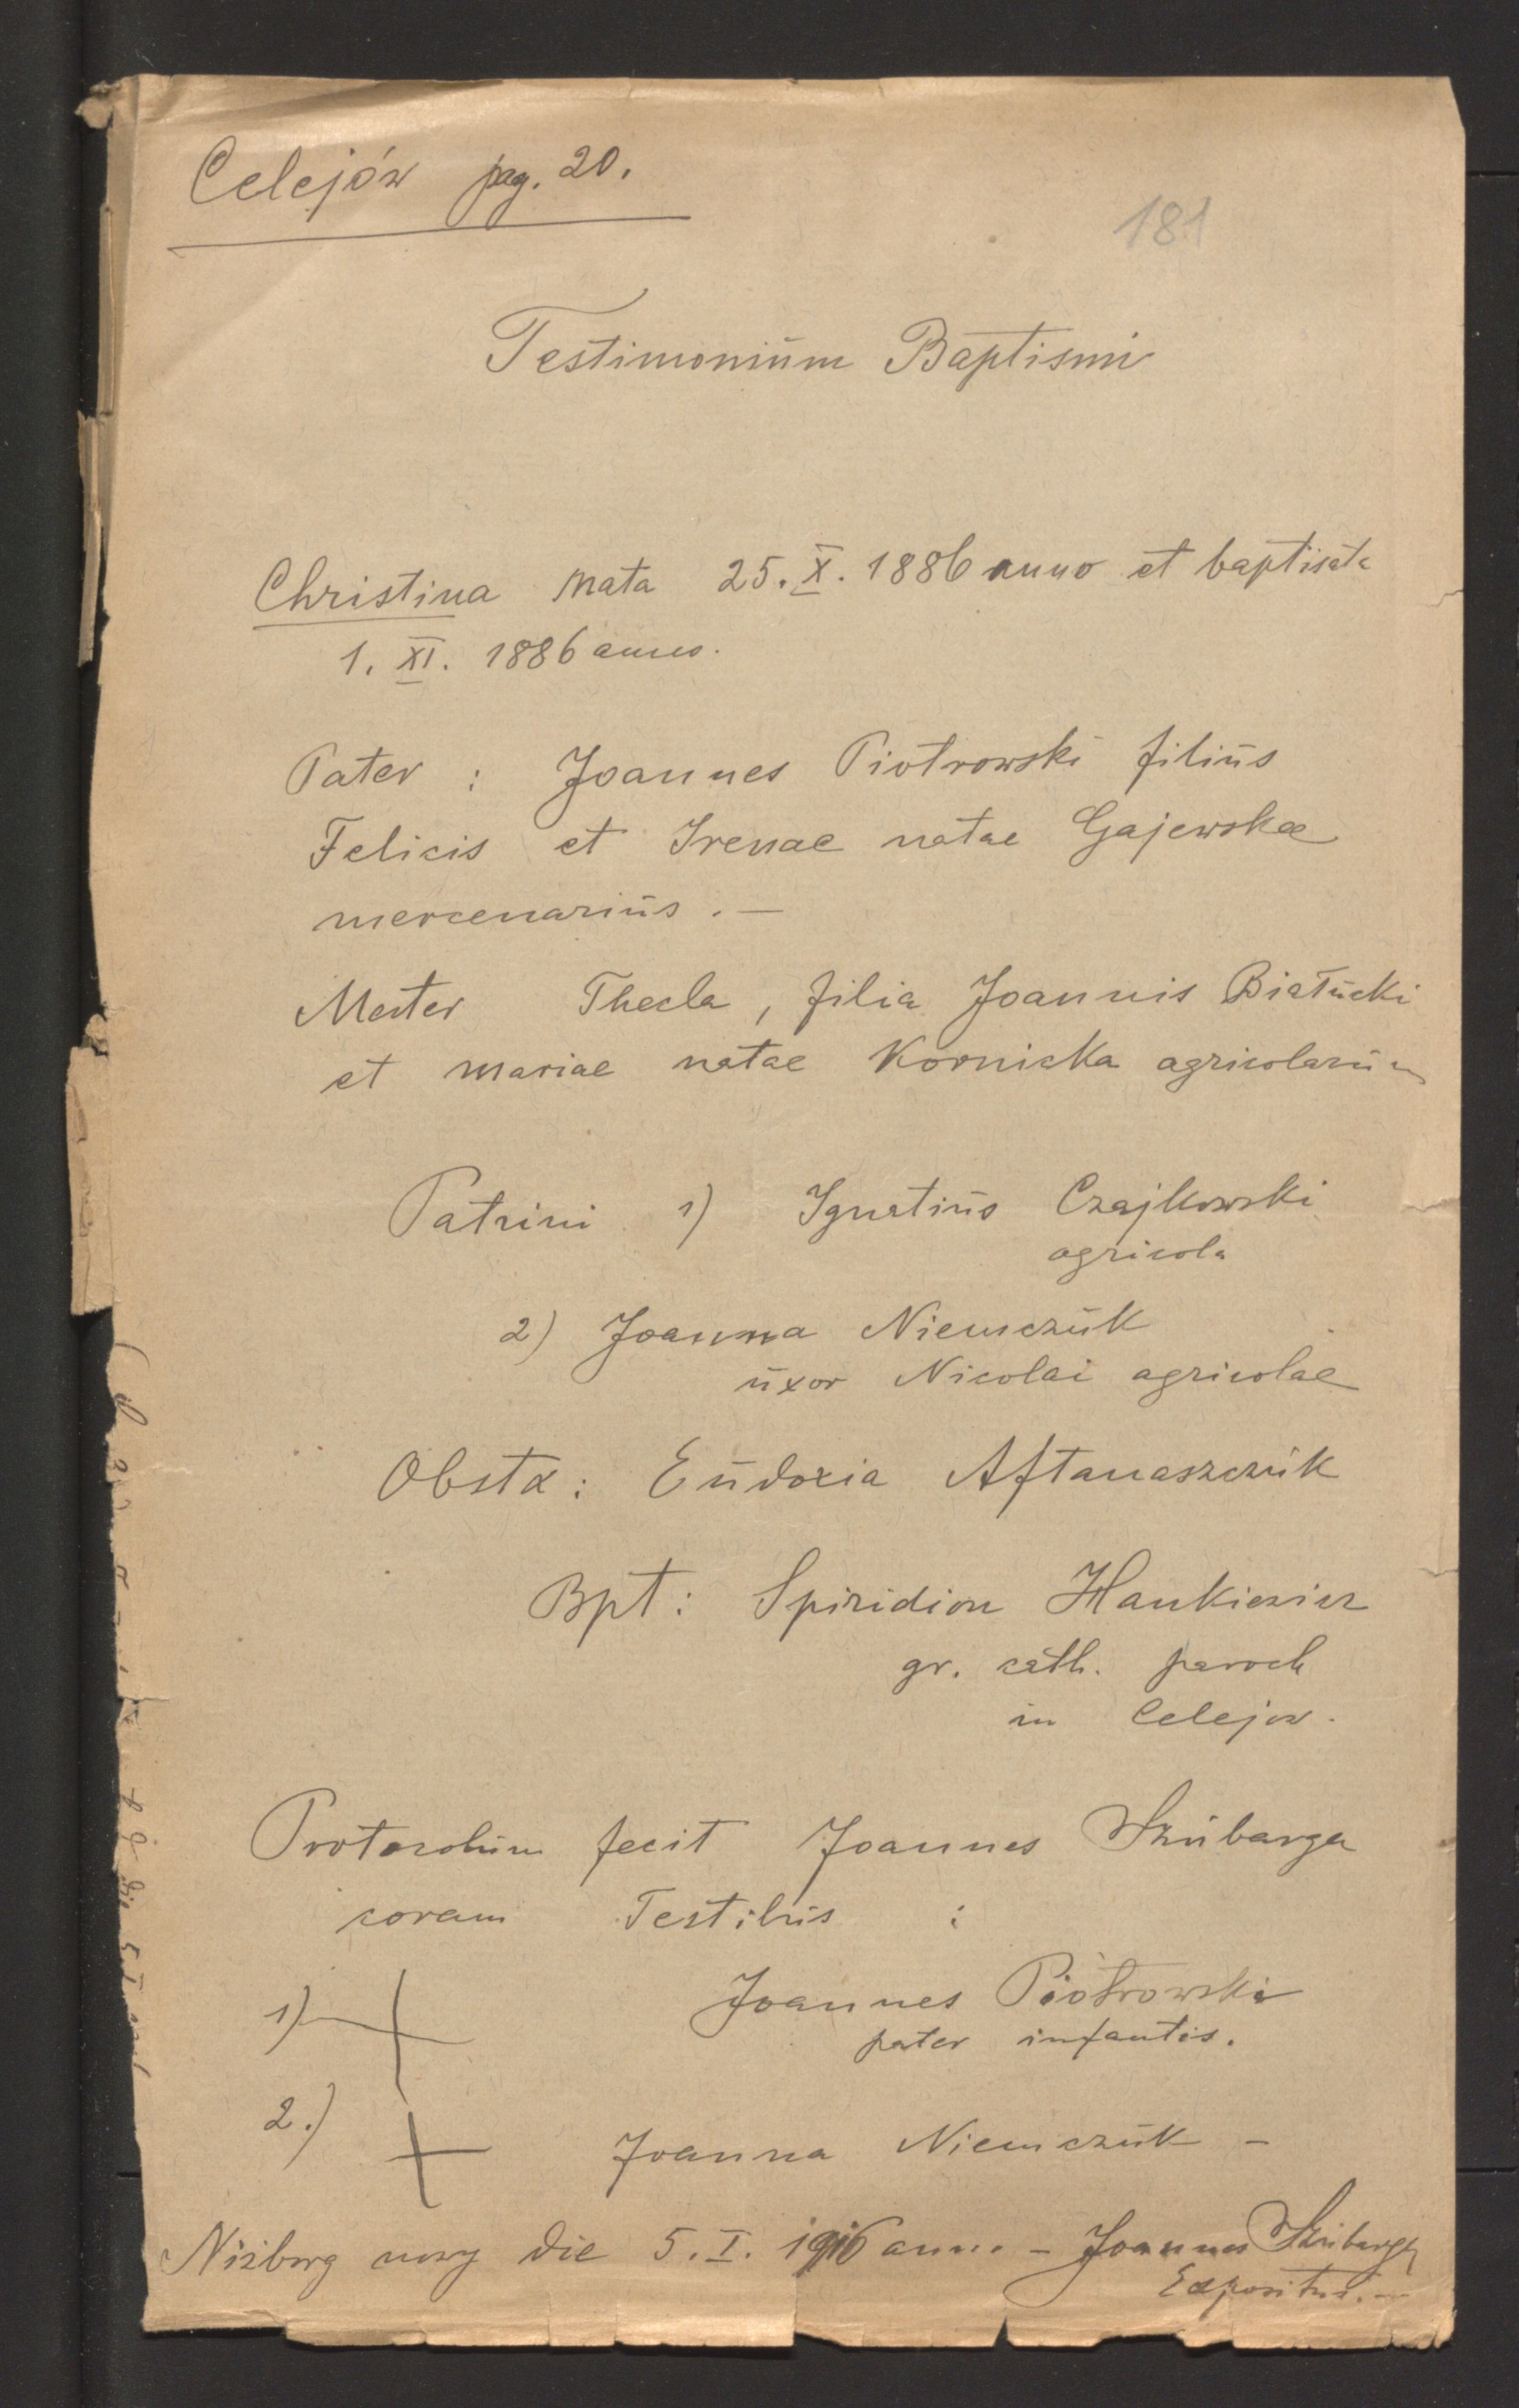 Celejów pag. 20.
181
Testimonium Baptismi
Christina nata 25. X. 1886 anno et baptisata
1. XI. 1886 anno.
Pater : Joannes Piotrowski filius
Felicis et Irenae natae Gajewskae
mercenarius. —
Mater Thecla, filia Joannis Białucki
et Mariae natae Kornicka agricolarum
Patrini 1) Ignatius Czajkowski
agricola
2) Joanna Niemczuk
uxor Nicolai agricolae
Obstx: Eudoxia Aftanaszczuk
Bpt: Spiridion Hankiewicz
gr. cath. paroch
in Celejow.
Protocolum fecit Joannes Skubarga
coram Testibus :
1) + Joannes Piotrowski
pater infantis.
2.) + Joanna Niemczuk –
Niżborg nowy die 5. I. 1916 anno – Joannes
Expositus. —